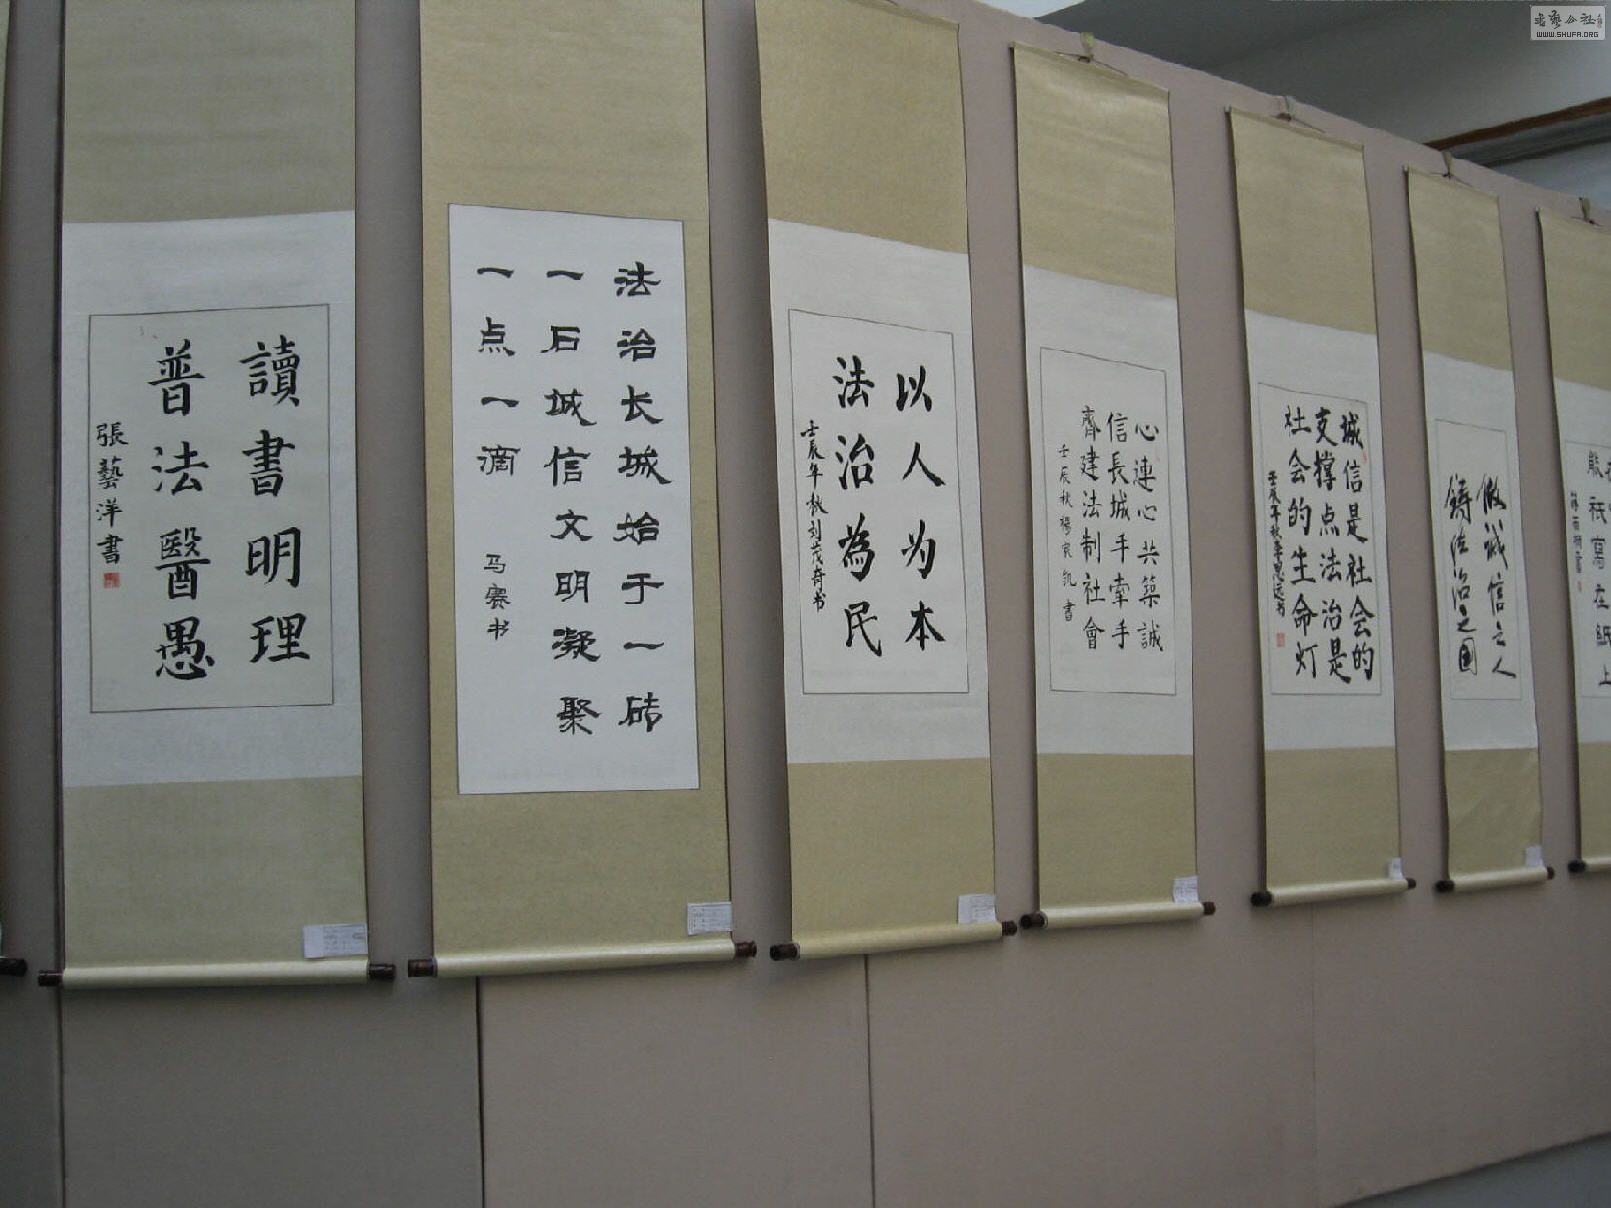 讀書明理
普法醫愚
張藝洋書
法治长城始于一砖
一石城信文明凝聚
一点一滴
马赛书
以人为本
法治為民
壬辰年秋刘茂奇书
心連心共築誠
信長城手牽手
齊建法制社會
壬辰秋楊宸凯書
城信是社会的
支撑点法治是
社会的生命灯
壬辰年秋李思远书
做诚信之人
鑄法治之國
祇寫在紙上
書艺公社
WWW.SHUFA.ORG